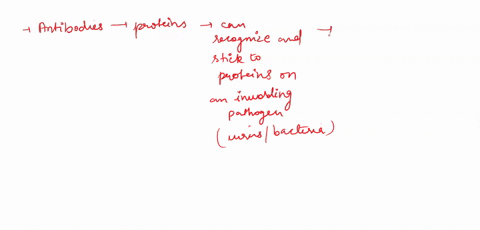 → Antibodies → proteins → can →
recognize and
stick to
proteins on
an invading
pathogen
(virus/bacteria)